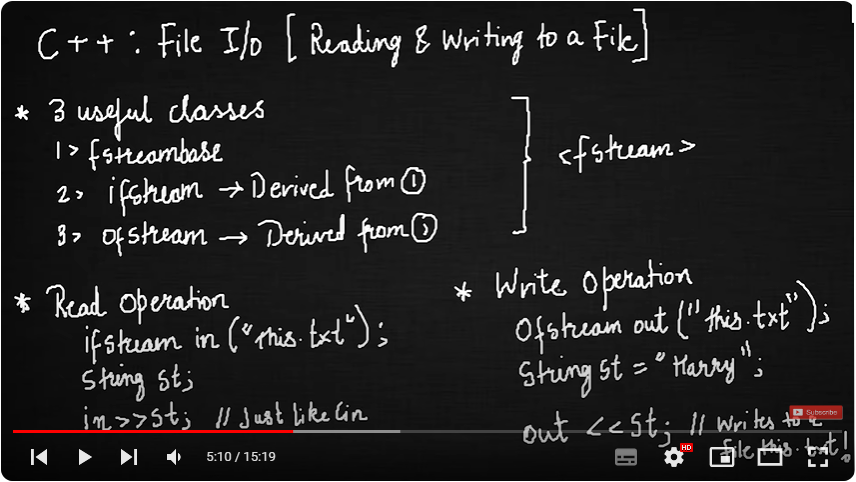 C++: File I/o [Reading & Writing to a File]
* 3 useful classes
1> fstreambase
2> ifstream → Derived from ①
3> ofstream → Derived from ①
<fstream>
* Read operation
ifstream in ("this.txt");
String St;
in>>St; // Just like Cin
* Write operation
Ofstream out ("this.txt");
String St = "Harry";
out <<St; // Writes to a
file this.txt!
Subscribe
5:10 / 15:19
HD